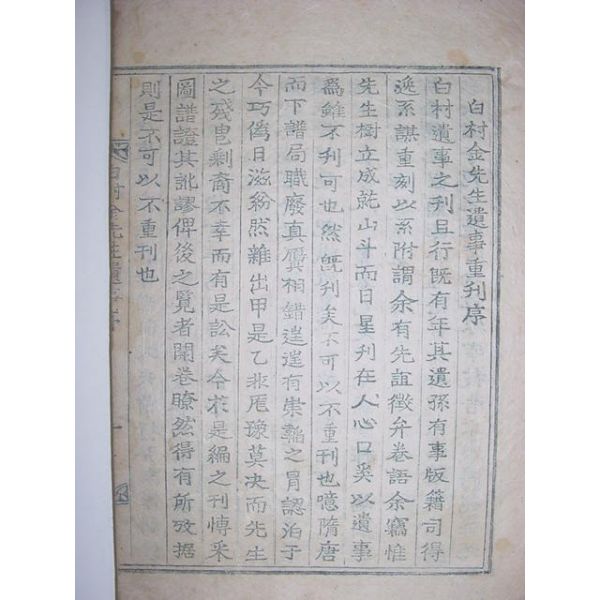 白村金先生遺事重刊序
白村遺事之刊且行旣有年其遺孫有事版籍司得
逸系謀重刻以系附謂余有先誼徵弁卷語余竊惟
先生樹立成就山斗而日星刊在人心口奚以遺事
爲雖不刊可也然旣刊矣不可以不重刊也噫隋唐
而下譜局職廢真贋相錯遑遑有崇韜之胃認泊于
今巧僞日滋紛然雜出甲是乙非虎豫莫決而先生
之殘曳剩裔不幸而有是訟矣今茲是編之刊博采
圖譜證其訛謬俾後之覽者開卷瞭然得有所攷据
則是不可以不重刊也
白村金先生遺事序